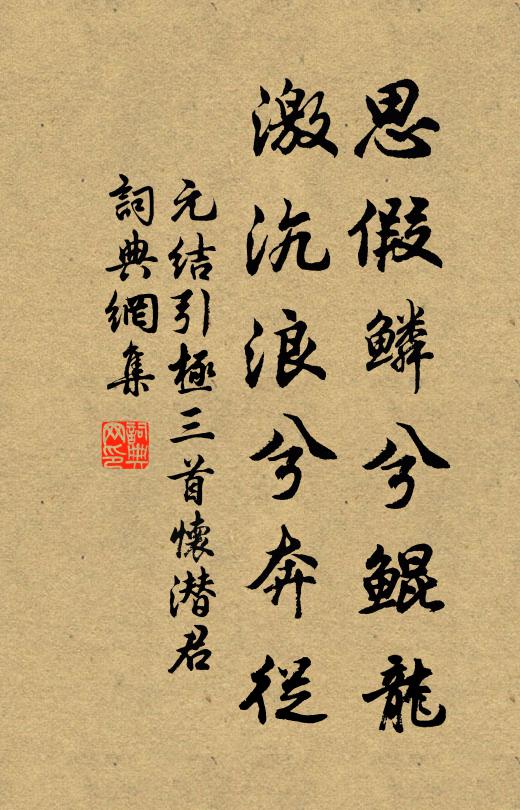 思假鱗兮鯤龍
激沆浪兮奔從
元结引極三首懷潜君
詞典網集
詞典网印